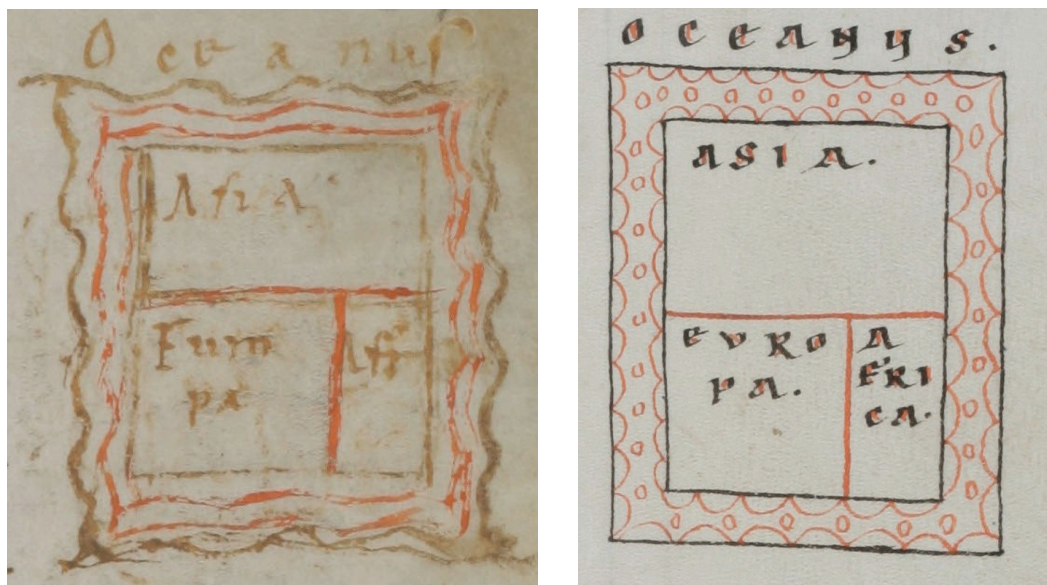 Oceanus
Asia
Euro
pa
Affri
OCEANUS.
ASIA.
EVRO
PA.
A
FRI
CA.